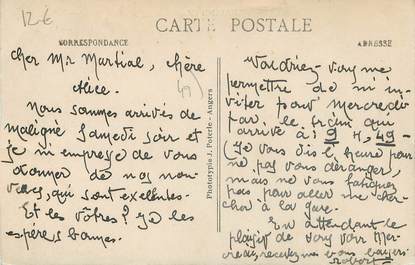 12€
CARTE POSTALE
CORRESPONDANCE
ADRESSE
Cher Mr Martial, chère
Alice.
Nous sommes arrivés de
maligné Samedi soir et
je m'empresse de vous
donner de nos nou-
velles, qui sont excellentes.
Et les vôtres? Je les
espère bonnes.
49
Phototypie J. Poterle - Angers
Voudriez-vous me
permettre de m'in
viter pour mercredi
par le train qui
arrive à 9 H, 49 -
(Je vous dis l'heure pour
ne pas vous déranger,
mais ne vous fatiguez
pas pour aller me cher-
cher à la gare.
En attendant le
plaisir de vous voir Mer-
credi, recevez mes bons baisers
Robert